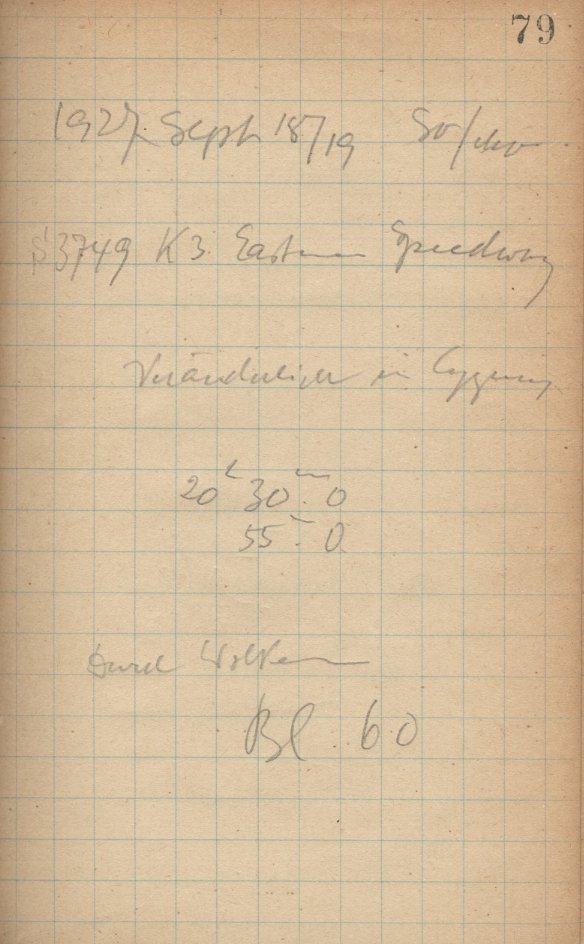 79
1927 Sept 18/19 So/Mo
S3749 K3 Eastman Speedway
Veränderlicher in Cygnus
20ʰ 30ᵐ.0
55.0
Durch Wolken
Bl 60